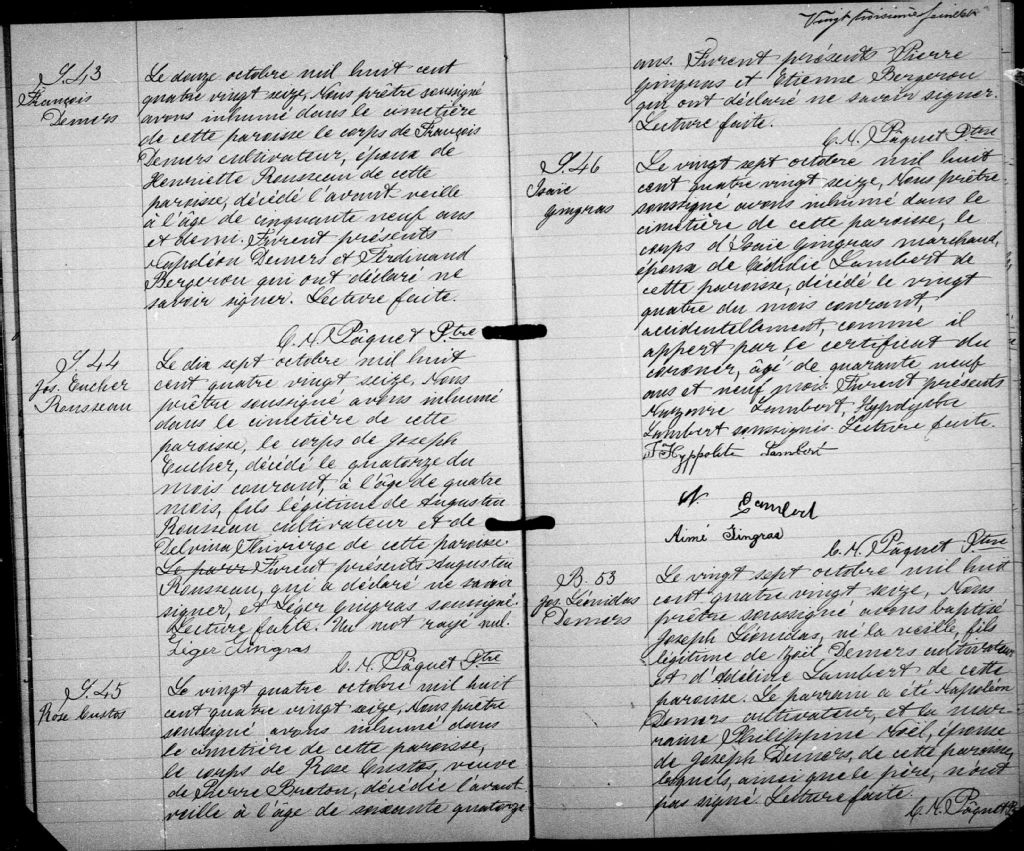 S. 43
François
Demers
Le douze octobre mil huit cent
quatre vingt seize, Nous prêtre soussigné
avons inhumé dans le cimetière
de cette paroisse le corps de François
Demers cultivateur, époux de
Henriette Rousseau de cette
paroisse, décédé l'avant veille
à l'âge de cinquante neuf ans
et demi. Furent présents
Napoléon Demers et Ferdinand
Bergeron qui ont déclaré ne
savoir signer. Lecture faite.
C. N. Pâquet Ptre
S. 44
Jos. Eucher
Rousseau
Le dix sept octobre mil huit
cent quatre vingt seize, Nous
prêtre soussigné avons inhumé
dans le cimetière de cette
paroisse, le corps de Joseph
Eucher, décédé le quatorze du
mois courant, à l'âge de quatre
mois, fils légitime de Augustin
Rousseau cultivateur et de
Delvina Thivierge de cette paroisse.
Le parr Furent présents Augustin
Rousseau, qui a déclaré ne savoir
signer, et Léger Gingras soussigné.
Lecture faite. Un mot rayé nul.
Léger Gingras
C. N. Pâquet Ptre
S. 45
Rose Custos
Le vingt quatre octobre mil huit
cent quatre vingt seize, Nous prêtre
soussigné avons inhumé dans
le cimetière de cette paroisse,
le corps de Rose Custos, veuve
de Pierre Breton, décédée l'avant
veille à l'âge de soixante quatorze
Vingt troisième feuillet
ans. Furent présents Pierre
Gingras et Etienne Bergeron
qui ont déclaré ne savoir signer.
Lecture faite.
C. N. Pâquet Ptre
S. 46
Isaïe
Gingras
Le vingt sept octobre mil huit
cent quatre vingt seize, Nous prêtre
soussigné avons inhumé dans le
cimetière de cette paroisse, le
corps d'Isaïe Gingras marchand,
époux de Cédidie Lambert de
cette paroisse, décédé le vingt
quatre du mois courant,
accidentellement, comme il
appert par le certificat du
coroner, âgé de quarante neuf
ans et neuf mois. Furent présents
Lambert,
Lambert soussignés. Lecture faite.
J Hyppolite Lambert
N Lambert
Aimé Gingras
C. N. Pâquet Ptre
B. 53
Jos. Léonidas
Demers
Le vingt sept octobre mil huit
cent quatre vingt seize, Nous
prêtre soussigné avons baptisé
Joseph Léonidas, né la veille, fils
légitime de Noël Demers cultivateur
et d'Adéline Lambert de cette
paroisse. Le parrain a été Napoléon
Demers cultivateur, et la mar-
raine Philippine Noël, épouse
de Joseph Demers, de cette paroisse,
lesquels, ainsi que le père, n'ont
pas signé. Lecture faite.
C. N. Pâquet